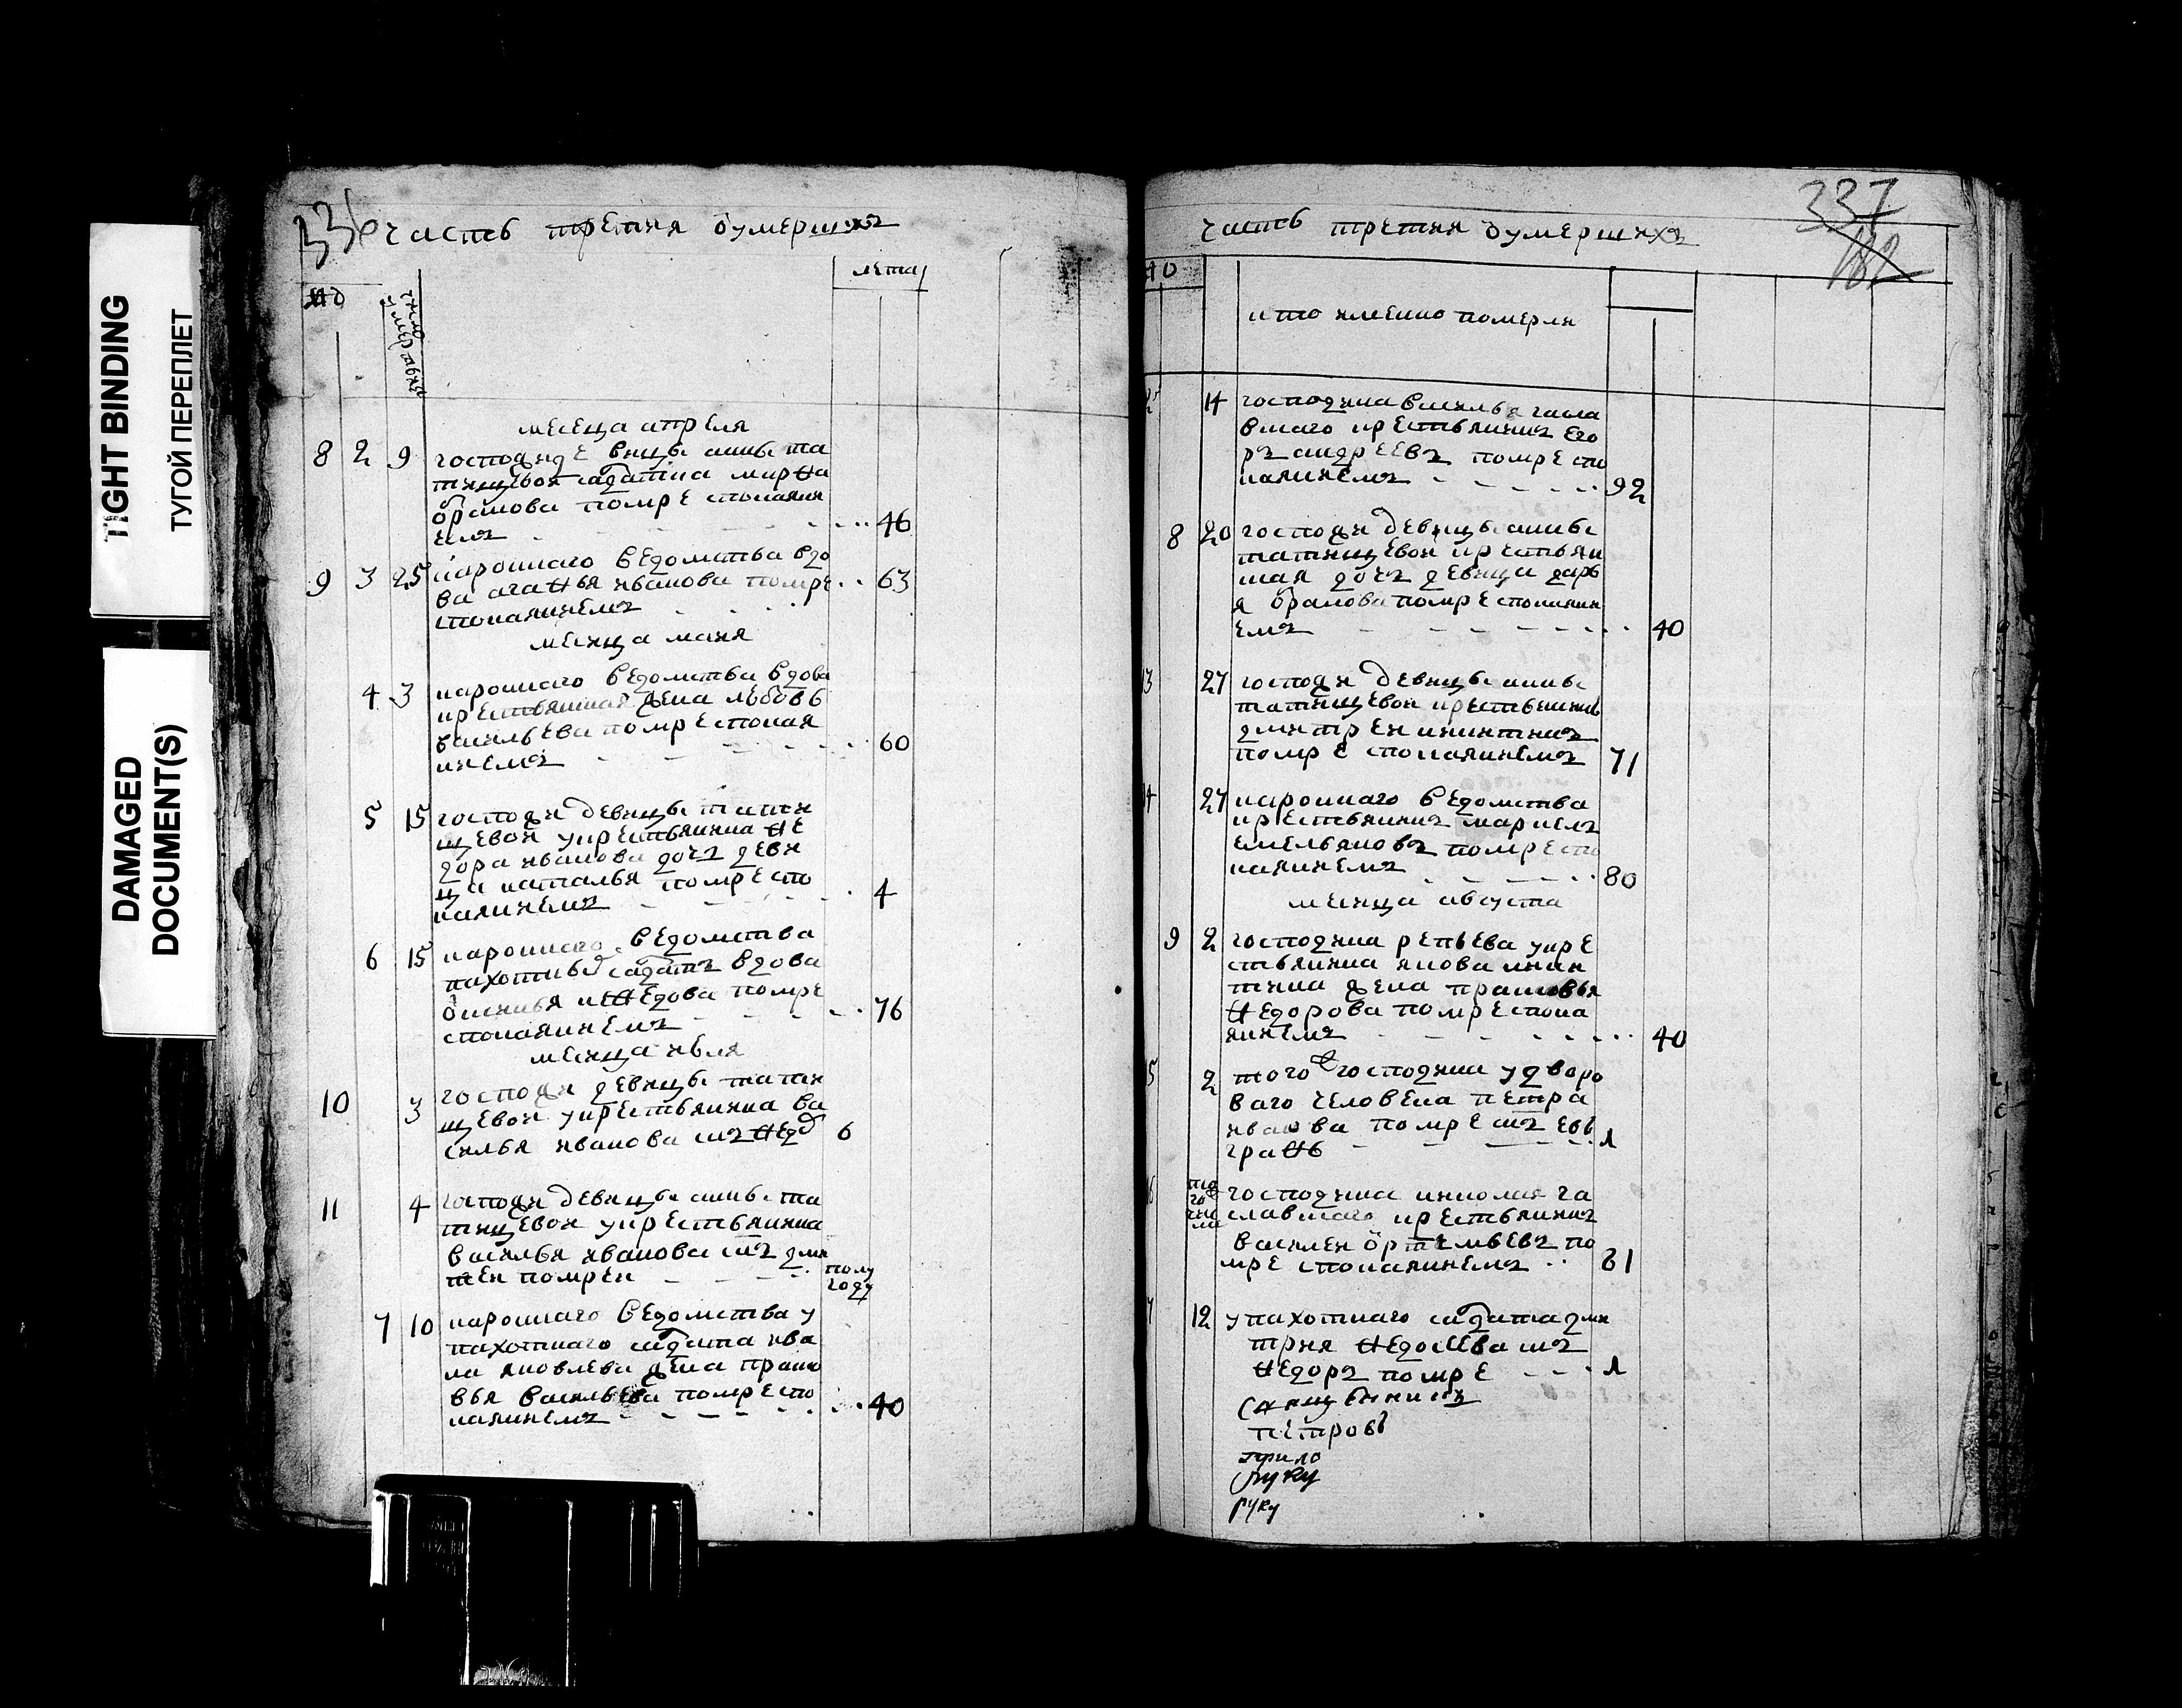 TIGHT BINDING
ТУГОЙ ПЕРЕПЛЕТ
DAMAGED
DOCUMENT(S)
336
часть третия оумерших
лета
числ
месеца апреля
8 2 9 господи девицы анны та
тищевой салдатка марфа
бранова помре спокаяни
емъ 46
9 3 25 каронного ведомства вдо
ва агафья иванова помре 63
спокаяниемъ
месица маия
4 3 каронного ведомства вдова
крестьянская жена любовь
васильева помре спокая
ниемъ 60
5 15 господи девицы тати
щевой укрестьянина фе
дора иванова дочъ деви
ца наталья помре спо
каяниемъ 4
6 15 каронного ведомства
салдатъ вдова
нефедова помре
спокаяниемъ 76
месица июля
10 3 господи девицы тати
щевой укрестьянина ва
силья иванова снъ федо 6
11 4 господи девицы анны та
тищевой укрестьянина
василья иванова снъ дми
трей помреи полу
году
7 10 каронного ведомства у
пахотного салдата ива
на яковлева жена праско
вья васильева помре спо
каяниемъ 40
337
182
часть третия оумершихъ
кто имеино померли
14 господина василья гасла
вского крестьянинъ его
ръ андреевъ помре спо
каяниемъ 92
8 20 господи девицы анны
татищевой крестьян
ская дочъ девица дарь
я бранова помре спокаяни
емъ 40
13 27 господи девицы анны
татищевой крестьянинъ
дмитрей никитинъ
помре спокаяниемъ 71
14 27 каронного ведомства
крестьянинъ маркелъ
емельяновъ помре спо
каяниемъ 80
месица августа
9 2 господина репьева укре
стьянина якова мики
тина жена прасковья
федорова помре спока
яниемъ 40
5 2 того господина удворо
ваго человека петра
иванова помре снъ евъ
графъ
6 того числа господина николая га
славского крестьянинъ
василей ортемьевъ по
мре спокаяниемъ 61
7 12 упахотного салдата дми
трия федосеева снъ
федоръ помре
петровъ
руку
руку